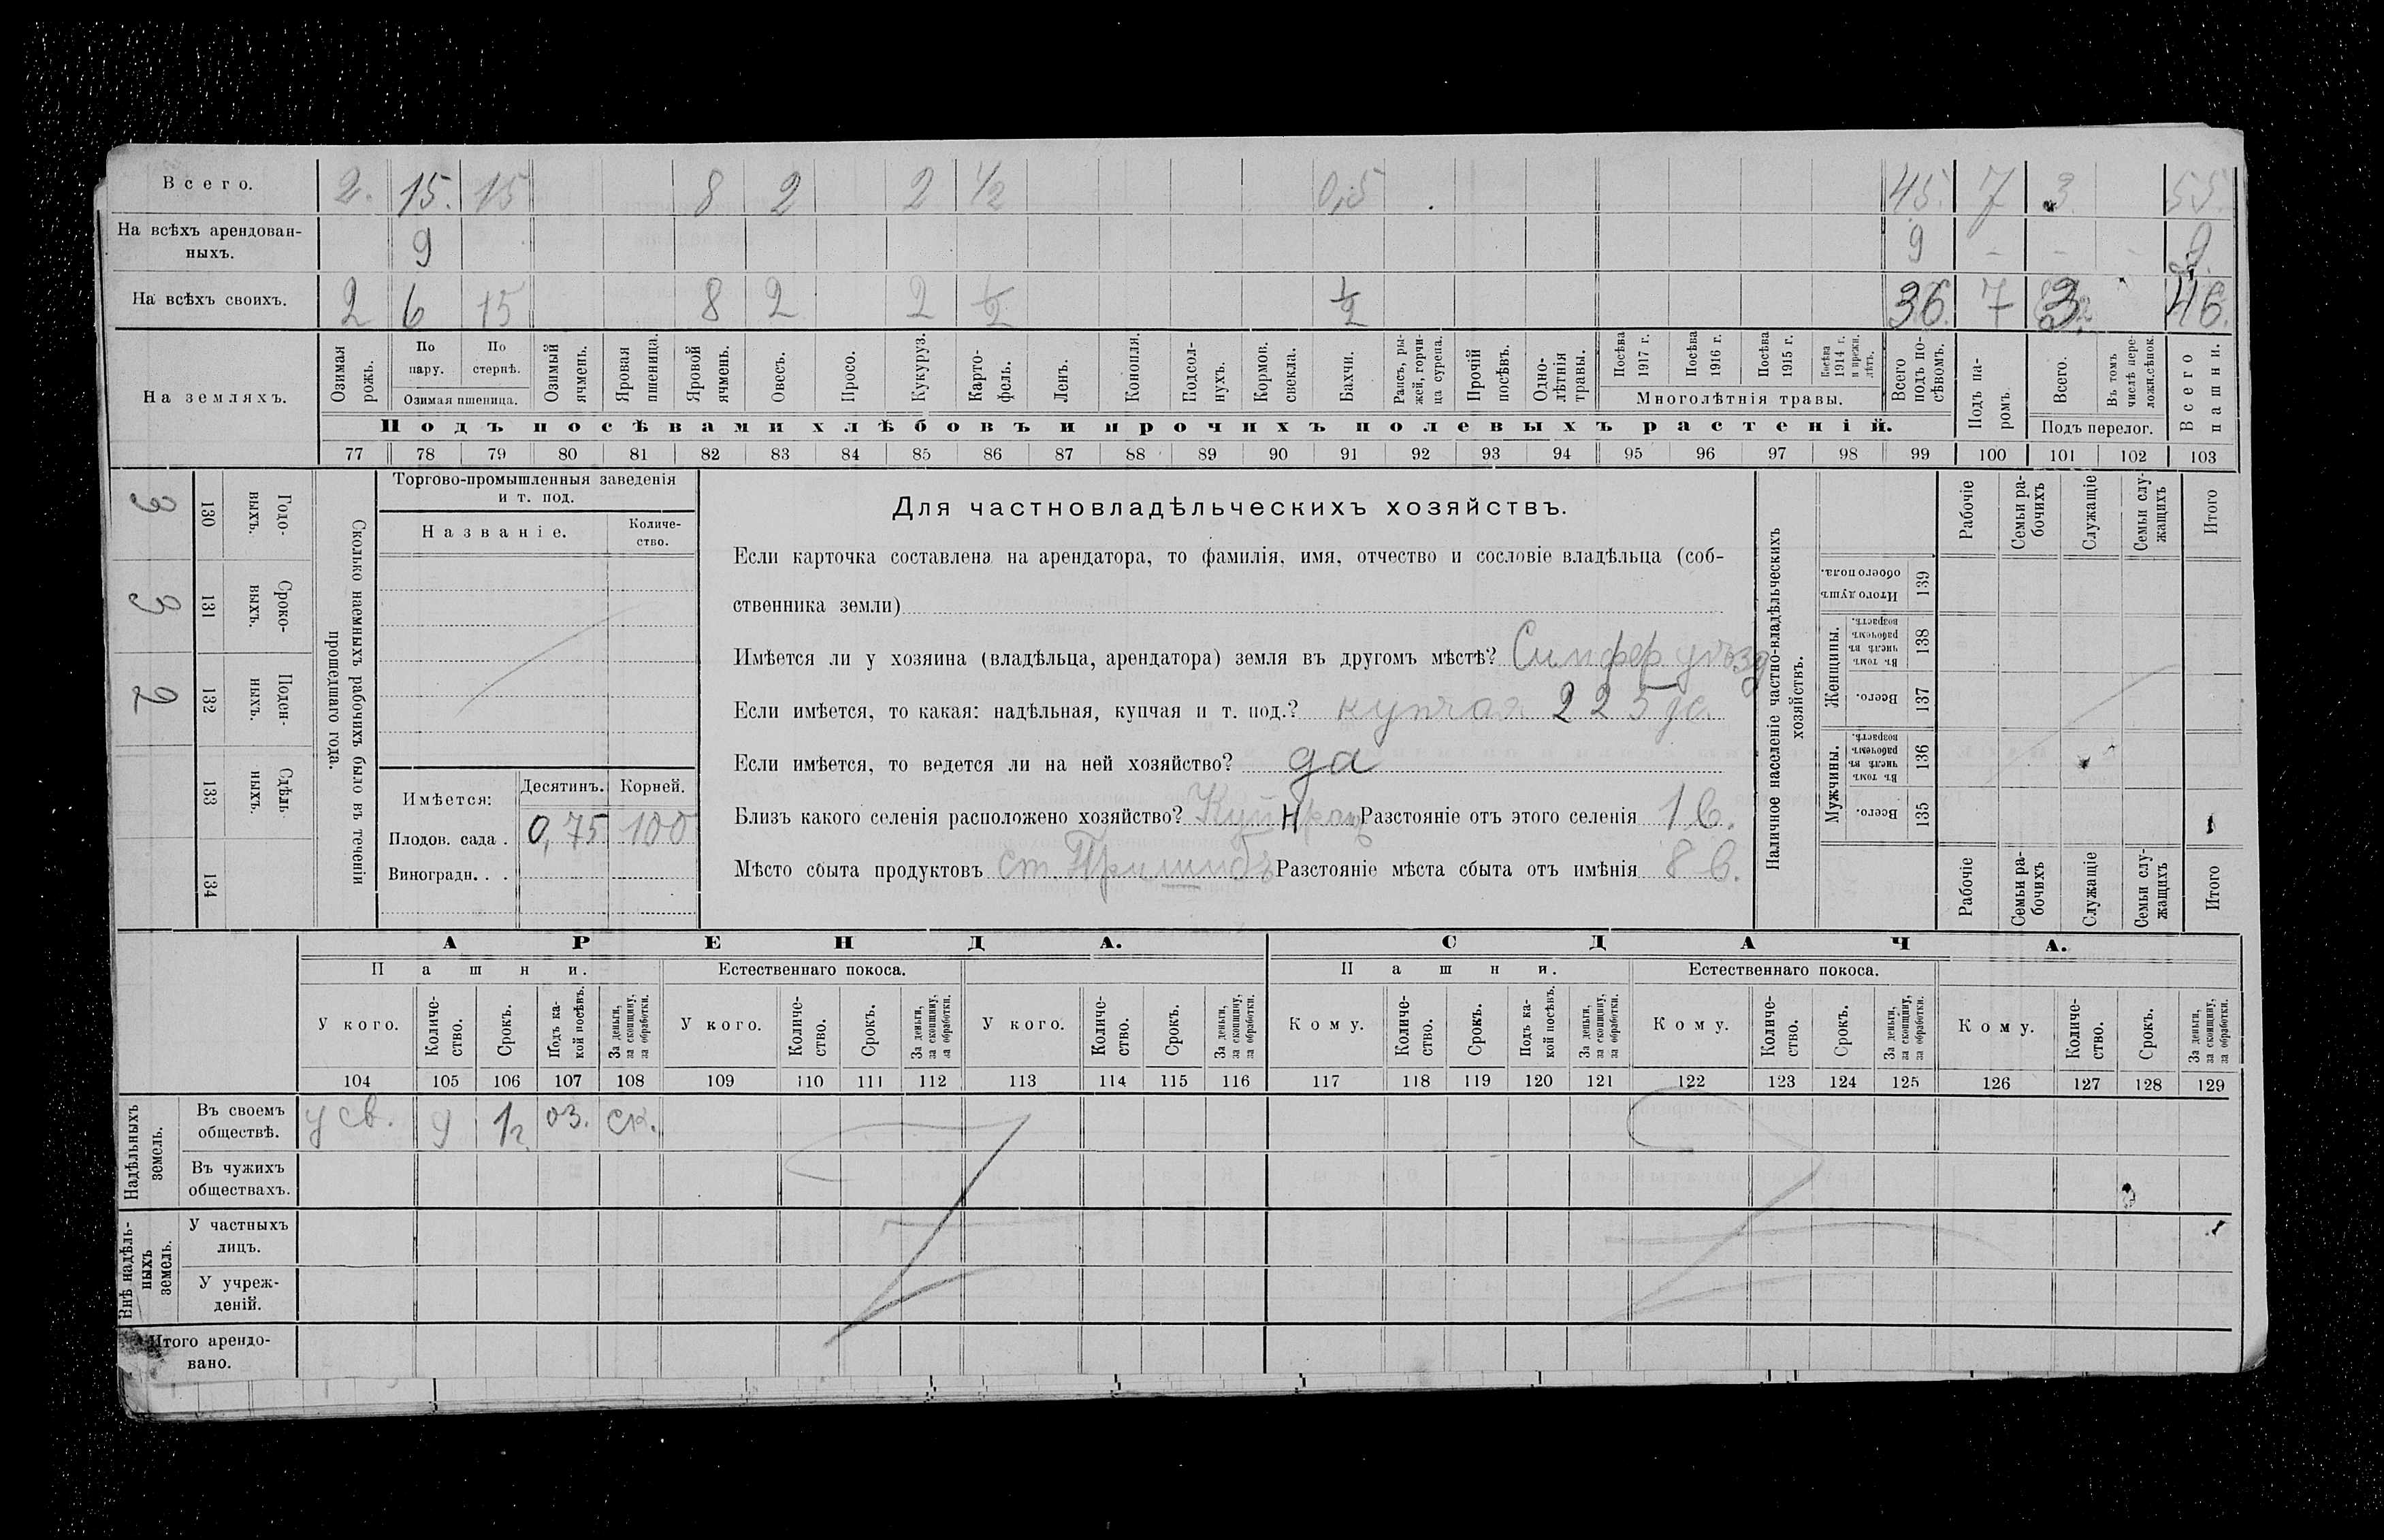 Всего. 2. 15. 15 8 2 2 ½ 0,5 45. 7 3 55.
На всѣхъ арендован-
ныхъ. 9 9 - - - 9.
На всѣхъ своихъ. 2 6 15 8 2 2 ½ ½ 36. 7 3 46.
На земляхъ.
Озимая рожь.
По пару.
По стернѣ.
Озимая пшеница.
Озимый ячмень.
Яровая пшеница.
Яровой ячмень.
Овесъ.
Просо.
Кукуруз.
Карто-
фель.
Ленъ.
Конопля.
Подсол-
нухъ.
Кормов. свекла.
Бахчи.
Рапсъ, ры-
жей, горчи-
ца сурепа.
Прочій посѣвъ.
Одно-
лѣтнія травы.
Посѣва 1917 г.
Посѣва 1916 г.
Посѣва 1915 г.
Посѣва 1914 г. и прежн. лѣтъ.
Многолѣтнія травы.
Всего подъ по-
сѣвомъ.
Подъ па-
ромъ.
Всего.
Въ томъ числѣ пере-
ложн.сѣнок.
Подъ перелог.
Всего пашни.
Подъ посѣвами хлѣбовъ и прочихъ полевыхъ растеній.
77 78 79 80 81 82 83 84 85 86 87 88 89 90 91 92 93 94 95 96 97 98 99 100 101 102 103
3 130 Годо-
выхъ.
3 131 Сроко-
выхъ.
2 132 Поден-
ныхъ.
133 Сдѣль-
ныхъ.
134
Сколько наемныхъ рабочихъ было въ теченіи
прошедшаго года.
Торгово-промышленныя заведенія
и т. под.
Названіе.
Количе-
ство.
Имѣется: Десятинъ. Корней.
Плодов. сада . 0,75 100
Виноградн. . .
Для частновладѣльческихъ хозяйствъ.
Если карточка составлена на арендатора, то фамилія, имя, отчество и сословіе владѣльца (соб-
ственника земли)
Имѣется ли у хозяина (владѣльца, арендатора) земля въ другомъ мѣстѣ? Симфер уѣзд
Если имѣется, то какая: надѣльная, купчая и т. под.? купчая 225 де.
Если имѣется, то ведется ли на ней хозяйство? да
Близъ какого селенія расположено хозяйство? Разстояніе отъ этого селенія 1 в.
Мѣсто сбыта продуктовъ ст. Пришибъ Разстояніе мѣста сбыта отъ имѣнія 8 в.
Наличное населеніе частно-владѣльческихъ
хозяйствъ.
Рабочіе
Семьи ра-
бочихъ
Служащіе
Семьи слу-
жащихъ
Итого
Итого душъ обоего пола. 139
Женщины.
Въ томъ числѣ въ рабочемъ возрастѣ. 138
Всего. 137
Мужчины.
Въ томъ числѣ въ рабочемъ возрастѣ. 136
Всего. 135
Рабочіе
Семьи ра-
бочихъ
Служащіе
Семьи слу-
жащихъ
Итого
АРЕНДА. СДАЧА.
Пашни. Естественнаго покоса. Пашни. Естественнаго покоса.
У кого.
Количе-
ство.
Срокъ.
Подъ ка-
кой посѣвъ.
За деньги, за скопщину, за обработки.
У кого.
Количе-
ство.
Срокъ.
За деньги, за скопщину, за обработки.
У кого.
Количе-
ство.
Срокъ.
За деньги, за скопщину, за обработки.
Кому.
Количе-
ство.
Срокъ.
Подъ ка-
кой посѣвъ.
За деньги, за скопщину, за обработки.
Кому.
Количе-
ство.
Срокъ.
За деньги, за скопщину, за обработки.
Кому.
Количе-
ство.
Срокъ.
За деньги, за скопщину, за обработки.
104 105 106 107 108 109 110 111 112 113 114 115 116 117 118 119 120 121 122 123 124 125 126 127 128 129
Надѣльныхъ
земель.
Въ своемъ
обществѣ. у св. 9 1 г. оз. ск.
Въ чужихъ
обществахъ.
Внѣ надѣль-
ныхъ
земель.
У частныхъ
лицъ.
У учреж-
деній.
Итого арендо-
вано.